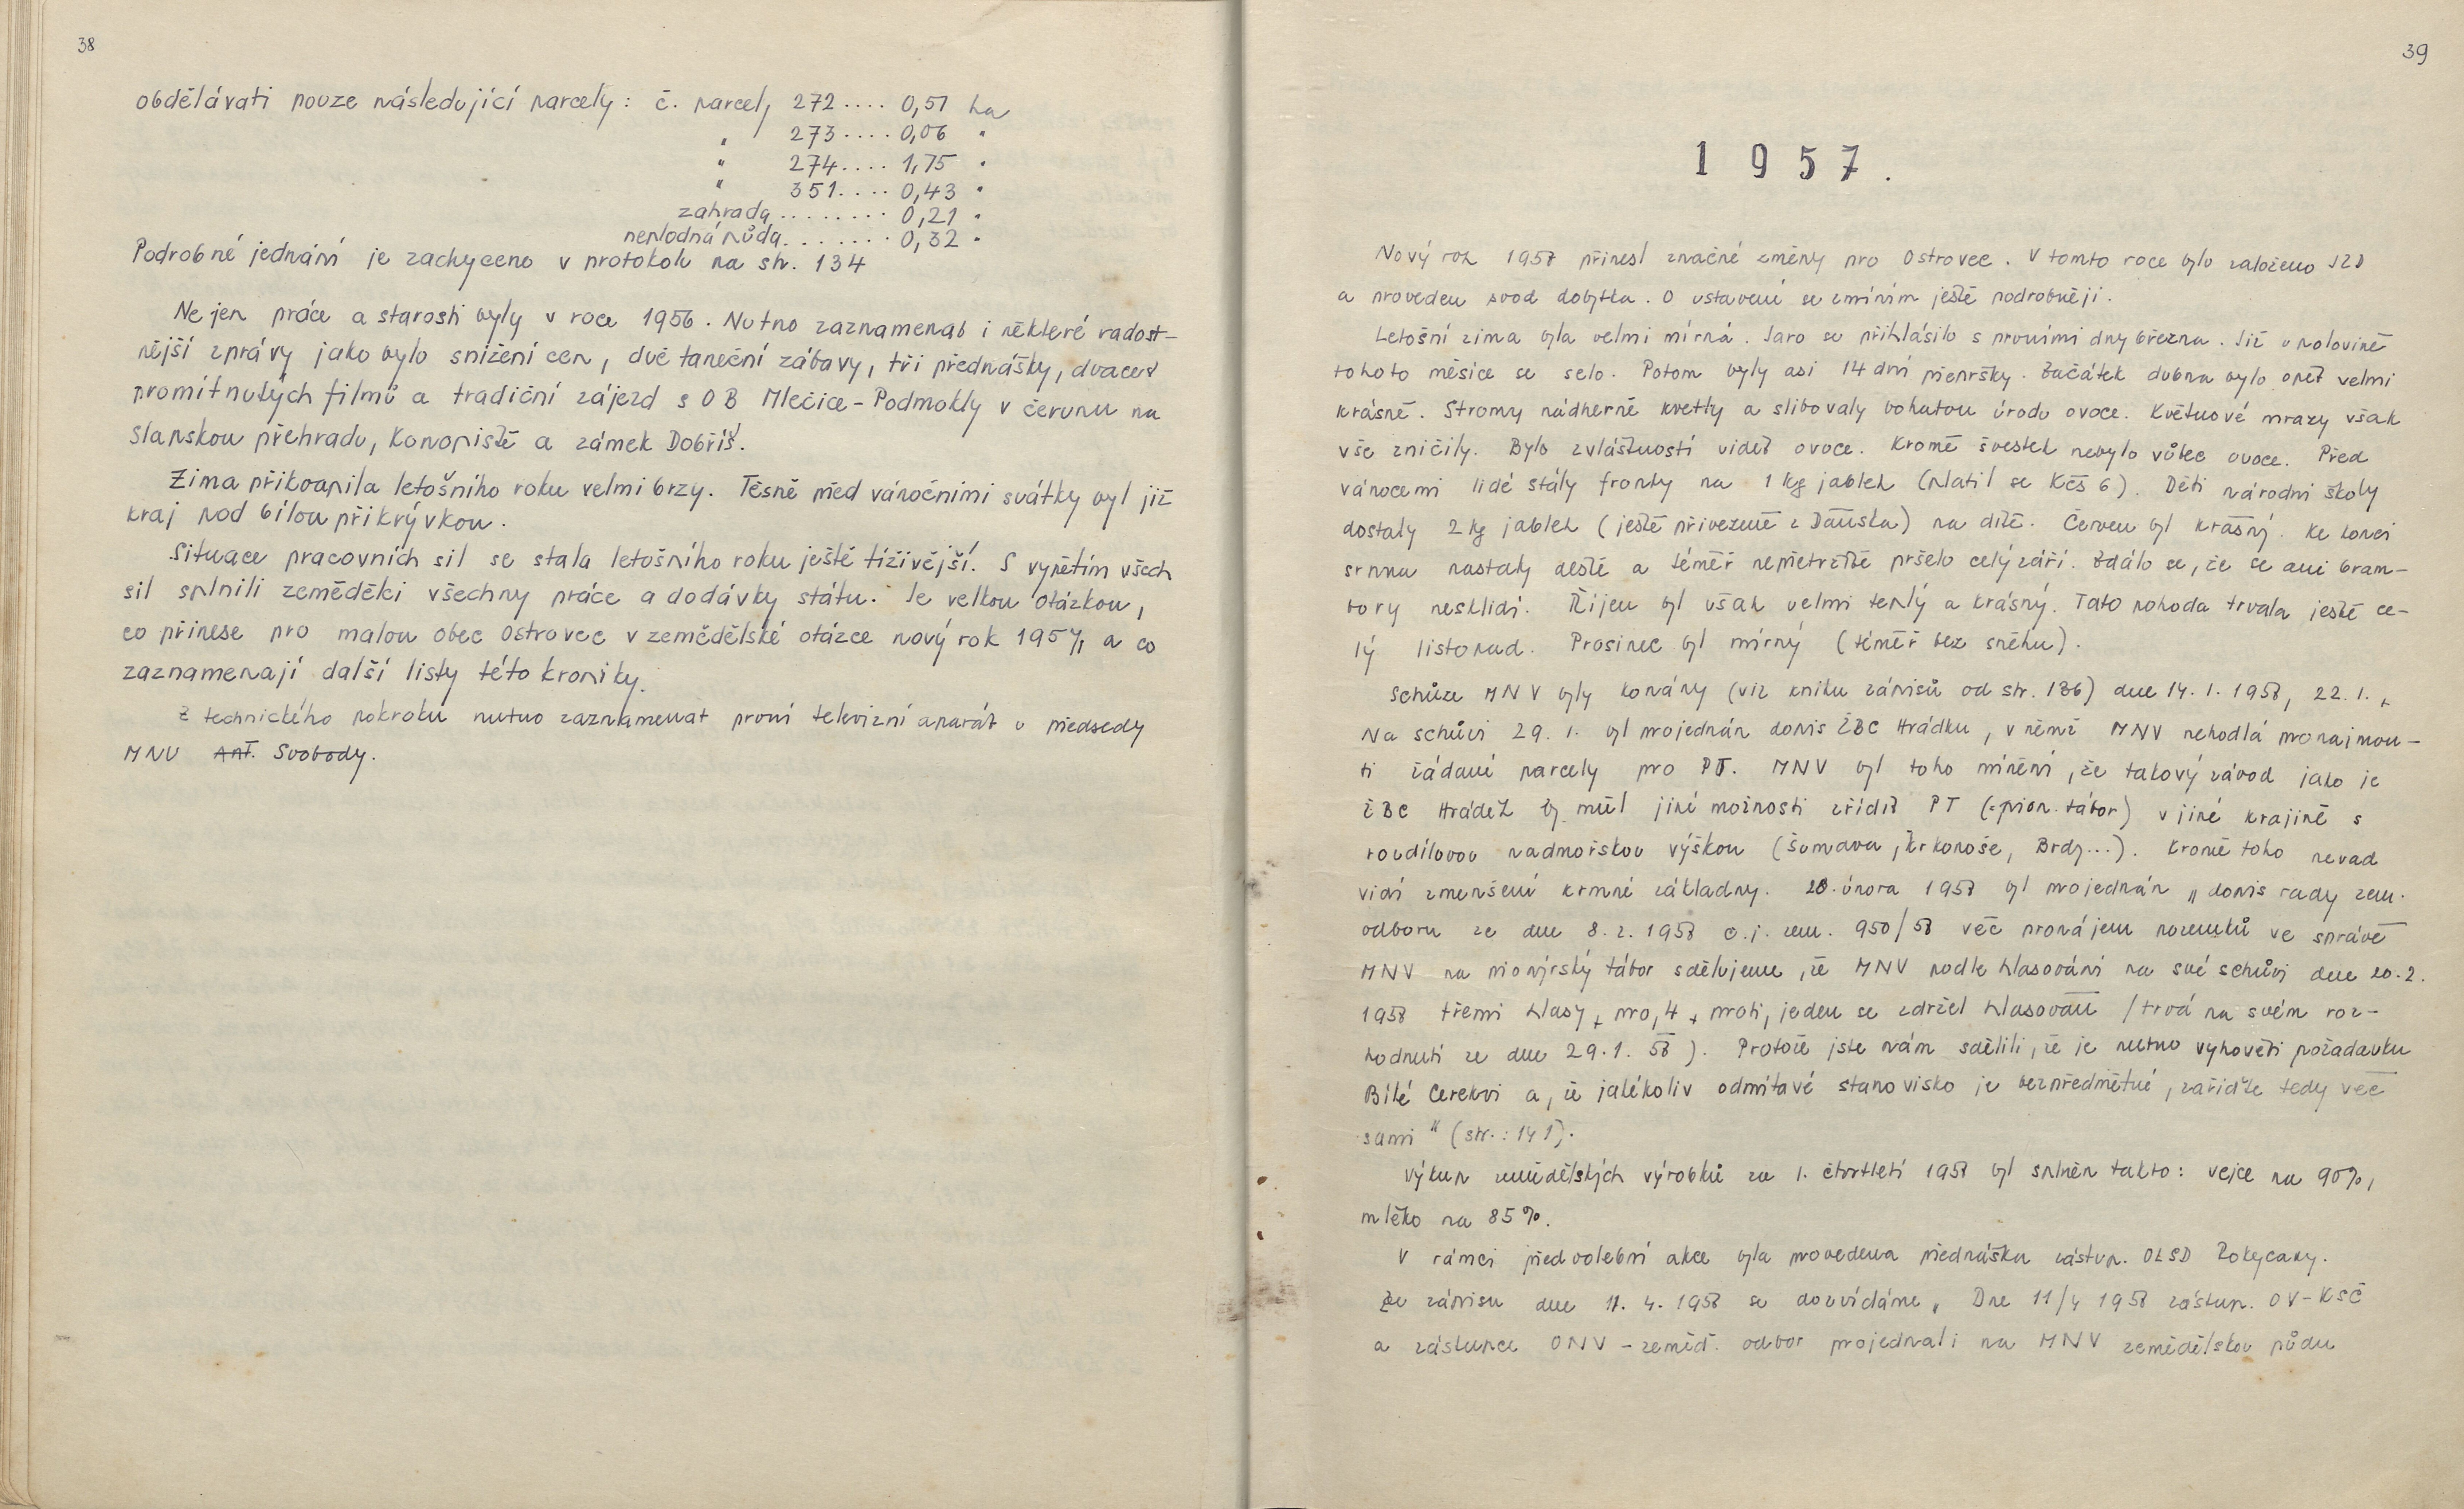 38
obdělávati pouze následující parcely: č. parcely 272.... 0,51 ha
" 273.... 0,06 "
" 274.... 1,75 "
" 351.... 0,43 "
zahrada ........ 0,21 "
neplodná půda....... 0,32 "
Podrobné jednání je zachyceno v protokolu na str. 134
Nejen práce a starosti byly v roce 1956. Nutno zaznamenat i některé radost-
nější zprávy jako bylo snížení cen, dvě taneční zábavy, tři přednášky, dvacet
promítnutých filmů a tradiční zájezd s OB Mlečice - Podmokly v červnu na
Slapskou přehradu, Konopiště a zámek Dobříš.
Zima přikvapila letošního roku velmi brzy. Těsně před vánočními svátky byl již
kraj pod bílou přikrývkou.
Situace pracovních sil se stala letošního roku ještě tíživější. S vypětím všech
sil splnili zemědělci všechny práce a dodávky státu. Je velkou otázkou,
co přinese pro malou obec Ostrovec v zemědělské otázce nový rok 1957, a co
zaznamenají další listy této kroniky.
Z technického pokroku nutno zaznamenat první televizní aparát u předsedy
MNV Ant. Svobody.
39
1957.
Nový rok 1957 přinesl značné změny pro Ostrovec. V tomto roce bylo založeno JZD
a proveden svod dobytka. O ustavení se zmíním ještě podrobněji.
Letošní zima byla velmi mírná. Jaro se přihlásilo s prvními dny března. Již v polovině
tohoto měsíce se selo. Potom byly asi 14 dní pleskanice. Začátek dubna bylo opět velmi
krásně. Stromy nádherně kvetly a slibovaly bohatou úrodu ovoce. Květnové mrazy však
vše zničily. Bylo zvláštností vidět ovoce. Kromě švestek nebylo vůbec ovoce. Před
vánocemi lidé stály fronty na 1 kg jablek (platil se Kčs 6). Děti národní školy
dostaly 2 kg jablek (ještě přivezené z Dánska) na dítě. Červen byl krásný. Ke konci
srpna nastaly deště a téměř nepřetržitě pršelo celý září. Zdálo se, že se ani bram-
bory nesklidí. Říjen byl však velmi teplý a krásný. Tato pohoda trvala ještě ce-
lý listopad. Prosinec byl mírný (téměř bez sněhu).
Schůze MNV byly konány (viz knihu zápisů od str. 136) dne 14. 1. 1958, 22. 1.,
Na schůzi 29. 1. byl projednán dopis ŽBC Hrádku, v němž MNV nehodlá pronajmou-
ti žádané parcely pro PT. MNV byl toho mínění, že takový závod jako je
ŽBC Hrádek by měl jiné možnosti zřídit PT (=pion. tábor) v jiné krajině s
rozdílovou nadmořskou výškou (Šumava, Krkonoše, Brdy...). Kromě toho nerad
vidí zmenšení krmné základny. 20. února 1958 byl projednán „dopis rady zem.
odboru ze dne 8. 2. 1958 č. j. zem. 950/58 věc pronájem pozemků ve správě
MNV na pionýrský tábor sdělujeme, že MNV podle hlasování na své schůzi dne 20. 2.
1958 třemi hlasy + pro, 4 + proti, jeden se zdržel hlasování /trvá na svém roz-
hodnutí ze dne 29. 1. 58). Protože jste nám sdělili, že je nutno vyhověti požadavku
Bílé Cerekvi a, že jakékoliv odmítavé stanovisko je bezpředmětné, zařiďte tedy věc
sami" (str.: 141).
Výkup zemědělských výrobků za 1. čtvrtletí 1958 byl splněn takto: vejce na 90%,
mléko na 85%.
V rámci předvolební akce byla provedena přednáška zástup. OLSD Rokycany.
Ze zápisu dne 11. 4. 1958 se dozvídáme „Dne 11/4 1958 zástup. OV-KSČ
a zástupce ONV - zeměd. odbor projednali na MNV zemědělskou půdu